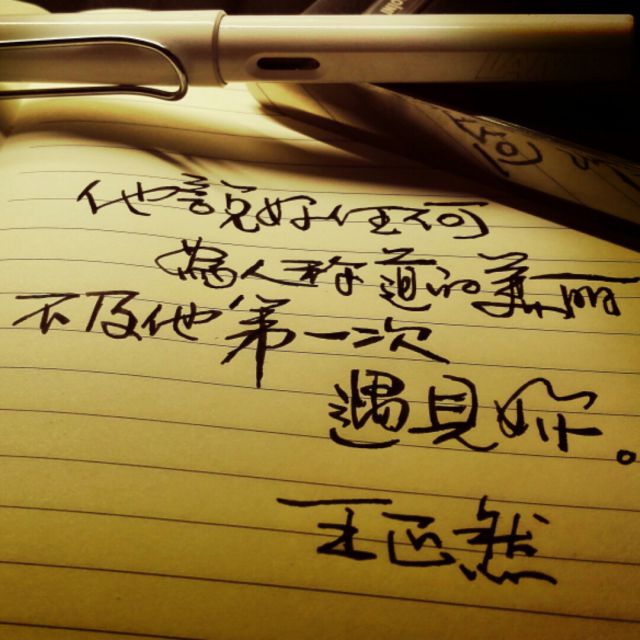 他說妳任何
為人称道的美麗
不及他第一次
遇見妳。
王然